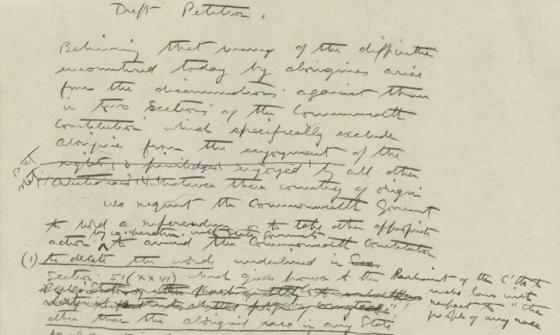 Draft Petition.
Believing that many of the difficulties
encountered today by aborigines arise
from the discriminations against them
in two Sections of the Commonwealth
Constitution which specifically exclude
Aborigines from the enjoyment of the
rights & privileges enjoyed by all other
stet
stet Australians whatever their country of origin
we request the Commonwealth Government
to hold a referendum or to take other appropriate
by co-operation with State Governments
action to amend the Commonwealth Constitution
(1) to delete the words underlined in Sec
Section 51 (XXVI) which gives power to the Parliament of the C'lth to
make laws with
respect to "the
people of any race
other than the aboriginal race in any State